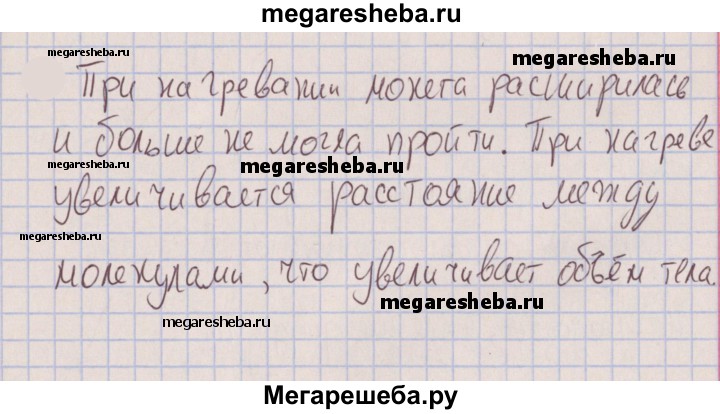 megaresheba.ru
megaresheba.ru
megaresheba.ru
При нагревании монета расширилась
и больше не могла пройти. При нагреве
megaresheba.ru
увеличивается расстояние между
megaresheba.ru
молекулами, что увеличивает объём тела.
megaresheba.ru
megaresheba.ru
Мегарешеба.ру